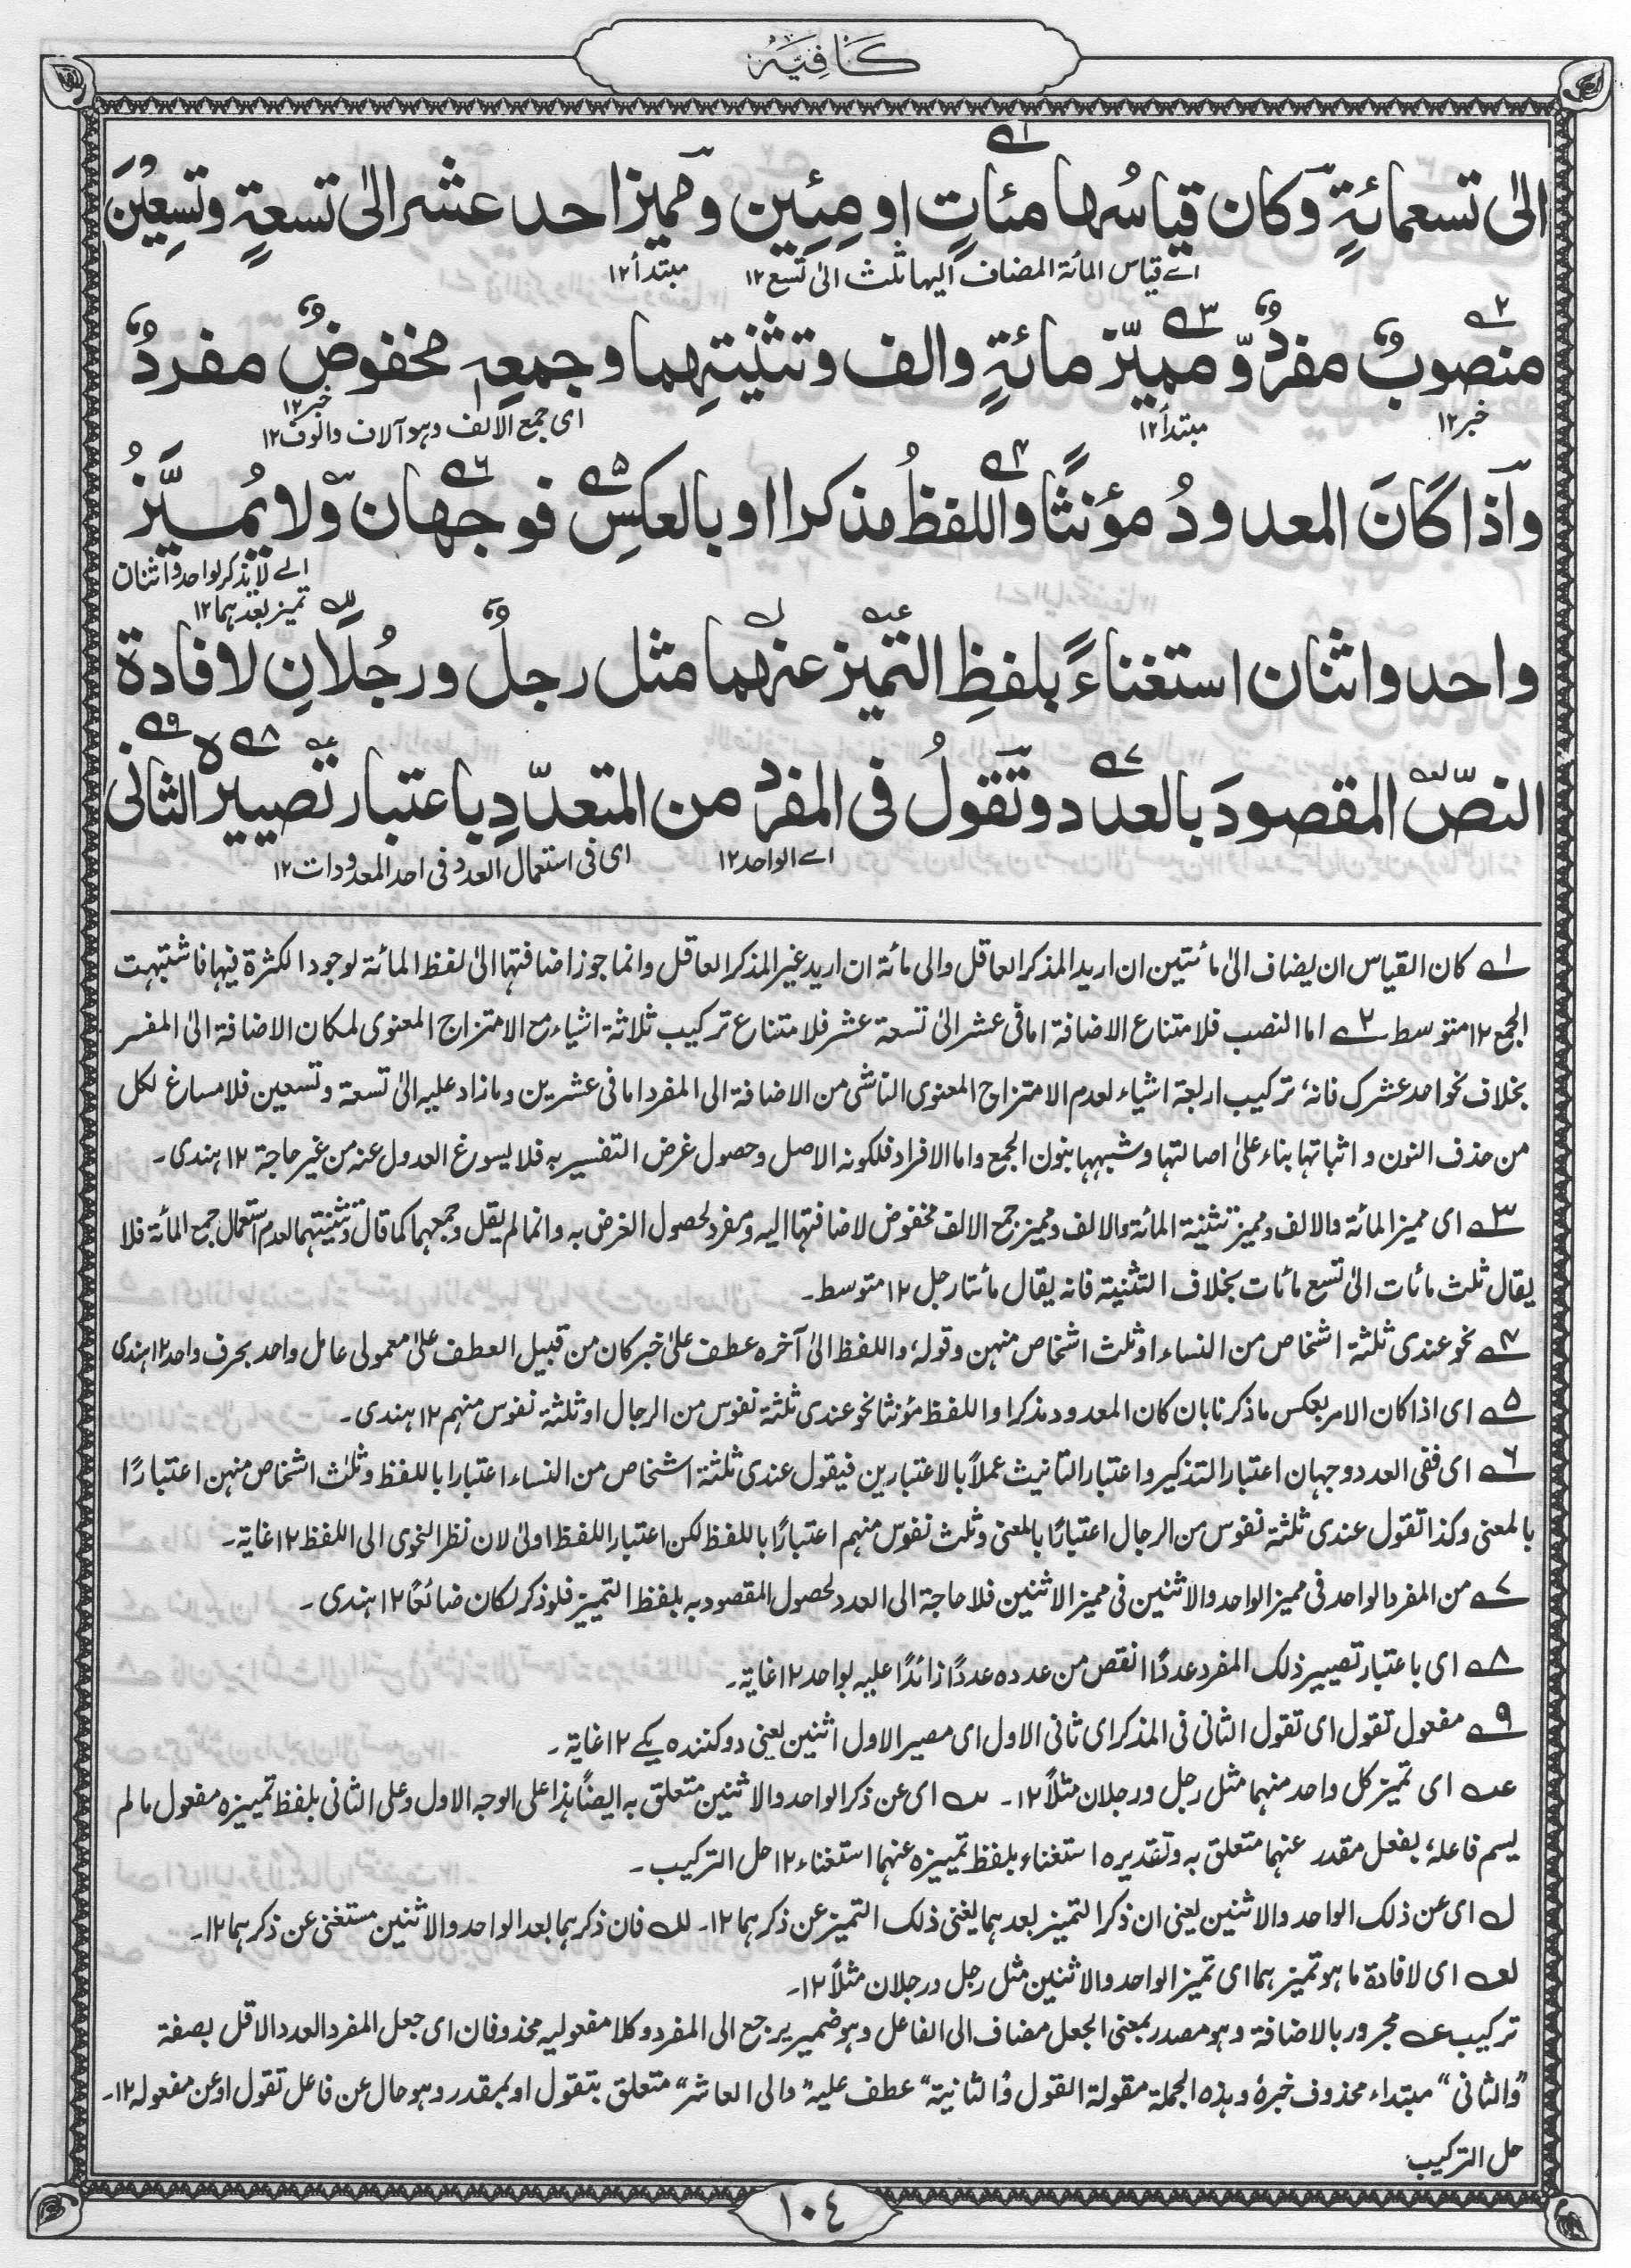 كَافِيَه
الىٰ تسعمائةٍ وكان قياسُها مئاتٍ او مِئِين ومميز احد عشر الىٰ تسعةٍ وتسعِيْنَ
اے قياس المائة المضاف اليها ثلث الىٰ تسع ١٢ مبتدأ ١٢
منصوبٌ مفردٌ ومميّز مائةٍ والف وتثنيتِهما وجمعِه مخفوضٌ مفردٌ
خبر ١٢ مبتدأ ١٢ اى جمع الالف وهو آلاف والوف ١٢ خبر ١٢
واذا كَانَ المعدودُ مؤنثًا واللفظُ مذكرا او بالعكسِ فوجهان ولا يُميَّزُ
اے لا يذكر لواحد واثنان
تميز بعدهما ١٢
واحد واثنان استغناءً بلفظِ التميّز عنهما مثل رجلٌ ورجُلَانِ لافادة
النصّ المقصودَ بالعدد وتقولُ فى المفرد من المتعدّدِ باعتبار تصييره الثانى
اے الواحد ١٢ اى فى استعمال العدد فى احد المعدودات ١٢
١ كان القياس ان يضاف الىٰ مائتين ان اريد المذكر العاقل والى مائة ان اريد غير المذكر العاقل وانما جوز اضافتها الىٰ لفظ المائة لوجود الكثرة فيها فاشتبهت
الجمع ١٢ متوسط ٢ اما النصب فلامتناع الاضافة اما فى عشر الىٰ تسعة عشر فلامتناع تركيب ثلاثة اشياء مع الامتزاج المعنوى لمكان الاضافة الىٰ المفسر
بخلاف نحو احد عشرك فانه تركيب اربعة اشياء لعدم الامتزاج المعنوى الناشى من الاضافة الى المفرد اما فى عشرين وما زاد عليه الىٰ تسعة وتسعين فلا مساغ لكل
من حذف النون و اثباتها بناء علىٰ اصالتها وشبهها بنون الجمع واما الافراد فلكونه الاصل وحصول غرض التفسير به فلا يسوغ العدول عنه من غير حاجة ١٢ هندى۔
٣ اى مميز المائة والالف ومميز تثنية المائة والالف ومميز جمع الالف مخفوض لاضافتها اليه ومفرد لحصول الغرض به وانما لم يقل وجمعهما كما قال وتثنيتهما لعدم استعمال جمع المائة فلا
يقال ثلث مائات الىٰ تسع مائات بخلاف التثنية فانه يقال مائتا رجل ١٢ متوسط۔
٤ نحو عندى ثلثة اشخاص من النساء او ثلث اشخاص منهن وقوله واللفظ الىٰ آخره عطف علىٰ خبر كان من قبيل العطف علىٰ معمولى عامل واحد بحرف واحد ١٢ هندى
٥ اى اذا كان الامر بعكس ما ذكرنا بان كان المعدود مذكرا واللفظ مؤنثا نحو عندى ثلثة نفوس من الرجال او ثلثة نفوس منهم ١٢ هندى۔
٦ اى ففى العدد وجهان اعتبار التذكير واعتبار التانيث عملاً بالاعتبارين فيقول عندى ثلثة اشخاص من النساء اعتبارا باللفظ وثلاث اشخاص منهن اعتبارًا
بالمعنى وكذا تقول عندى ثلثة نفوس من الرجال اعتبارًا بالمعنى وثلث نفوس منهم اعتبارًا باللفظ لكن اعتبار اللفظ اولىٰ لان نظر النحوى الى اللفظ ١٢ غاية۔
٧ من المفرد الواحد فى مميز الواحد والاثنين فى مميز الاثنين فلا حاجة الى العدد لحصول المقصود به بلفظ التمييز فلو ذكر لكان ضائعًا ١٢ هندى۔
٨ اى باعتبار تصيير ذلك المفرد عددًا انقص من عدده عددًا زائدًا عليه بواحد ١٢ غاية۔
٩ مفعول تقول اى تقول الثانى فى المذكر اى ثانى الاول اى مصير الاول اثنين يعنى دو كننده يكے ١٢ غاية۔
عہ اى تميز كل واحد منهما مثل رجل ورجلان مثلاً ١٢۔ ٮہ اى عن ذكر الواحد والاثنين متعلق به ايضًا هذا على الوجه الاول وعلى الثانى بلفظ تمييزه مفعول ما لم
يسم فاعله بفعل مقدر عنهما متعلق به وتقديره استغناء بلفظ تمييزه عنهما استغناء ١٢ حل التركيب۔
لہ اى عن ذلك الواحد والاثنين يعنى ان ذكر التميز بعدهما يغنى ذلك التميز عن ذكرهما ١٢۔ للہ فان ذكرهما بعد الواحد والاثنين مستغنى عن ذكرهما ١٢۔
لعہ اى لافادة ما هو تميزهما اى تميز الواحد والاثنين مثل رجل ورجلان مثلاً ١٢۔
تركيب عہ مجرور بالاضافة وهو مصدر بمعنى الجعل مضاف الى الفاعل وهو ضمير يرجع الى المفرد وكلا مفعوليه محذوفان اى جعل المفرد العدد الاقل بصفة
”والثانى“ مبتداء محذوف خبره وهذه الجملة مقولة القول ”والثانية“ عطف عليه ”والى العاشر“ متعلق بتقول او بمقدر وهو حال عن فاعل تقول او عن مفعوله ١٢۔
حل التركيب
١٠٤